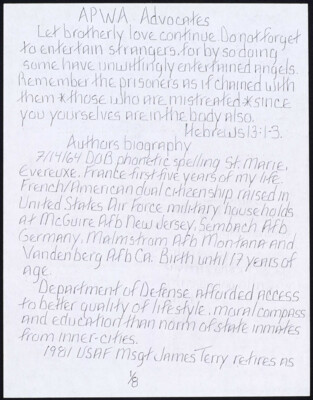 APWA Advocates
Let brotherly love continue Do not forget
to entertain strangers, for by so doing
some have unwittingly entertained angels.
Remember the prisoners as if chained with
them *those who are mistreated* since
you yourselves are in the body also.
Hebrews 13:1-3.
Authors biography
7/14/64 DOB phonetic spelling St Marie,
Evereuxe, France first five years of my life.
French/American dual citizenship raised in
United States Air Force military households
at McGuire Afb New Jersey, Sembach Afb
Germany, Malmstrom Afb Montana and
Vandenberg Afb Ca. Birth until 17 years of
age.
Department of Defense afforded access
to better quality of lifestyle, moral compass
and education than norm of state inmates
from inner-cities.
1981 USAF Msgt James Terry retires as
1/8